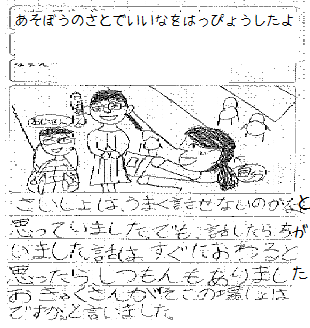 あそぼうのさとでいいなをはっぴょうしたよ
さいしょは、うまく話させないのかなと
思っていました。でも、話したらちが
いました。話はすぐにおわると
思ったらしつもんもありました
おきゃくさんが「どこの場しょは
ですか。」と言いました。